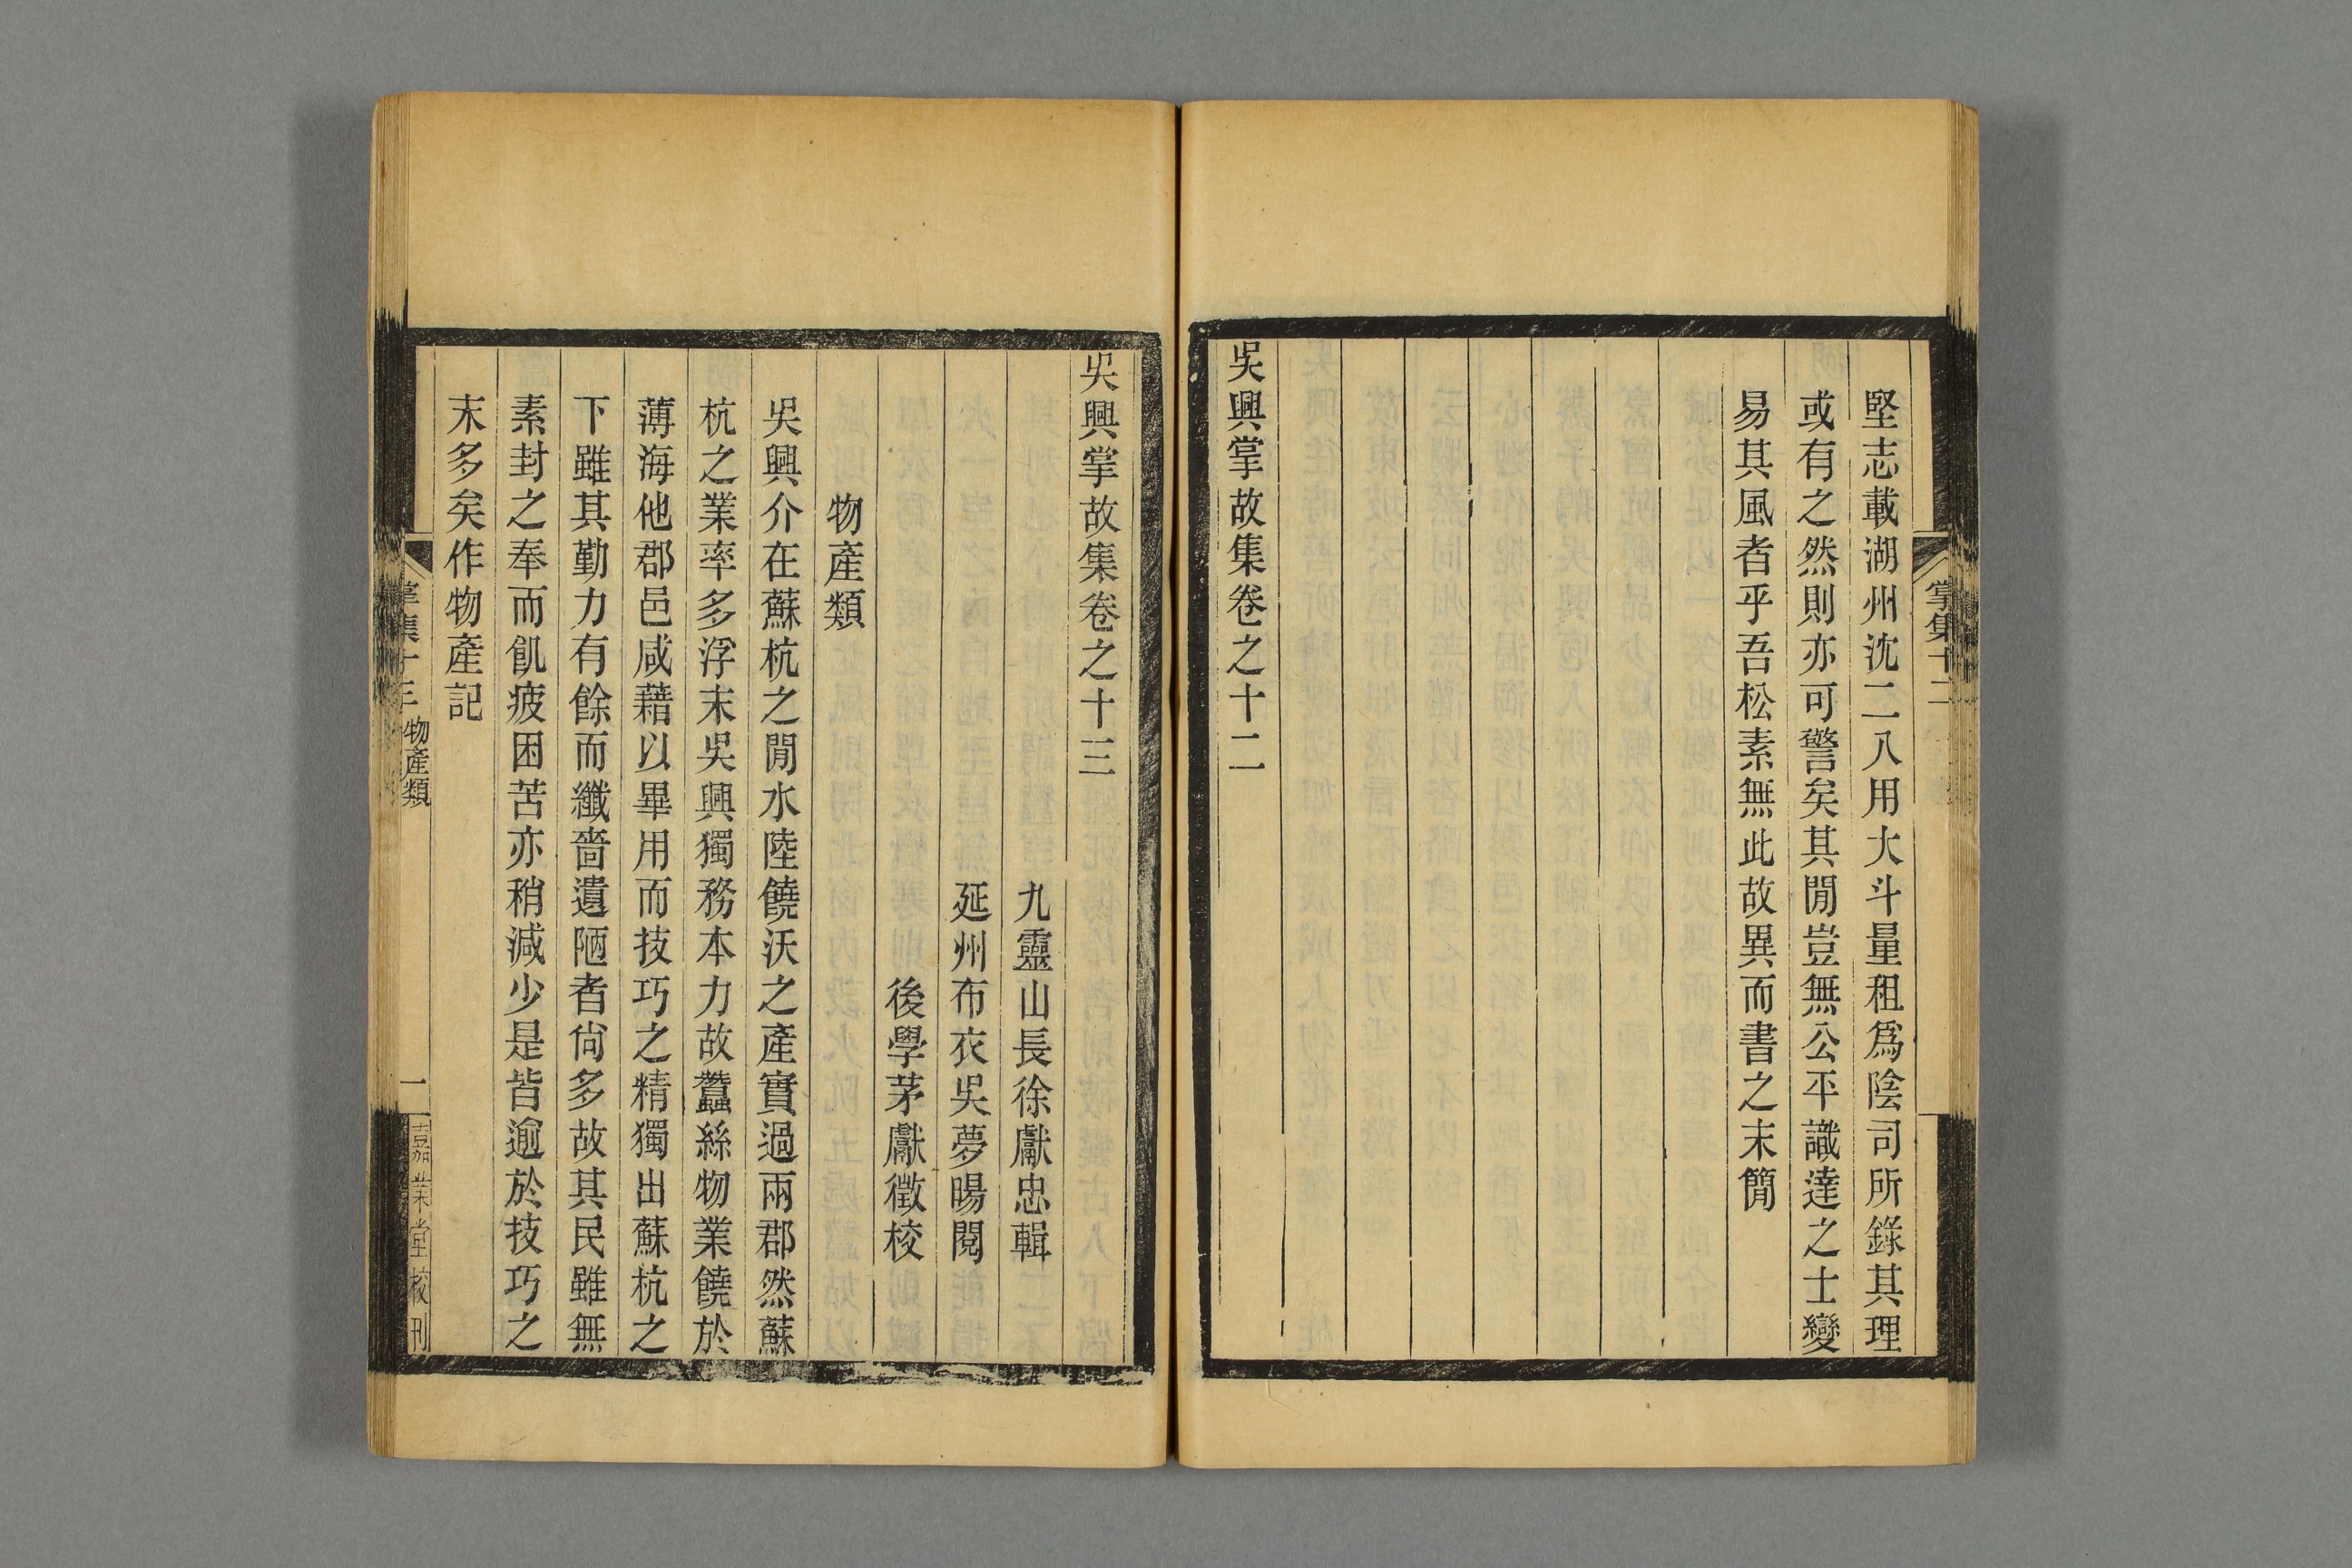 堅志載湖州沈二八用大斗量租爲陰司所錄其理
或有之然則亦可警矣其閒豈無公平識達之士變
易其風者乎吾松素無此故異而書之末簡
吳興掌故集卷之十二
掌集十二
吳興掌故集卷之十三
九靈山長徐獻忠輯
延州布衣吳夢暘閱
後學茅獻徵校
物產類
吳興介在蘇杭之閒水陸饒沃之產實過兩郡然蘇
杭之業率多浮末吳興獨務本力故蠶絲物業饒於
薄海他郡邑咸藉以畢用而技巧之精獨出蘇杭之
下雖其勤力有餘而纖嗇遺陋者尙多故其民雖無
素封之奉而飢疲困苦亦稍減少是皆逾於技巧之
末多矣作物產記
掌集十三 物產類
一
嘉業堂校刊